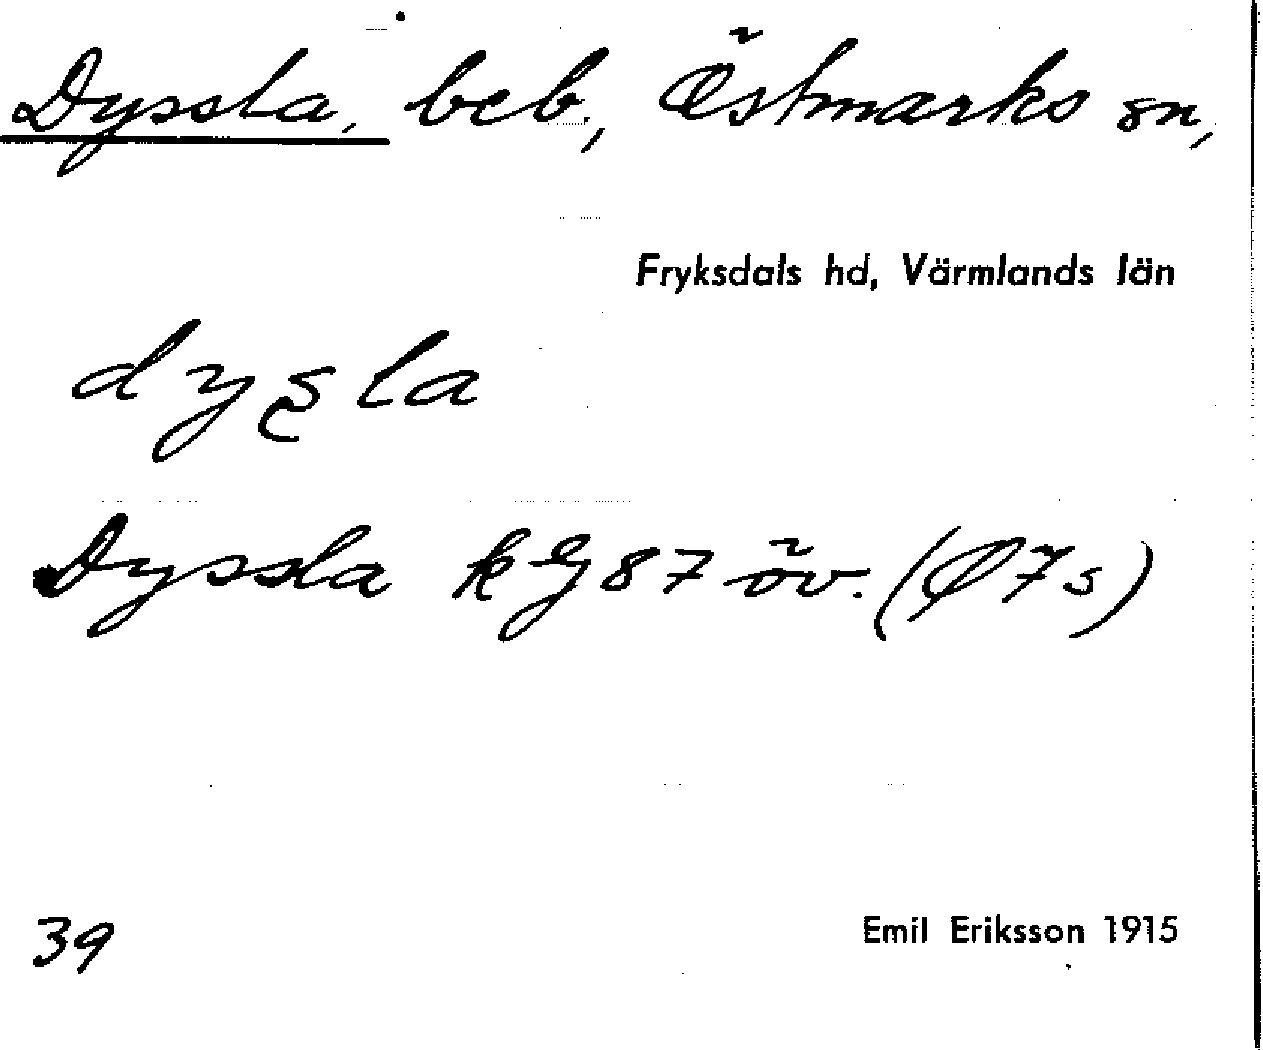 Dyssla, beb., Östmarks sn,
Fryksdals hd, Värmlands län
dysla
Dyssla kG 87 öv. (Ø 7s)
39
Emil Eriksson 1915